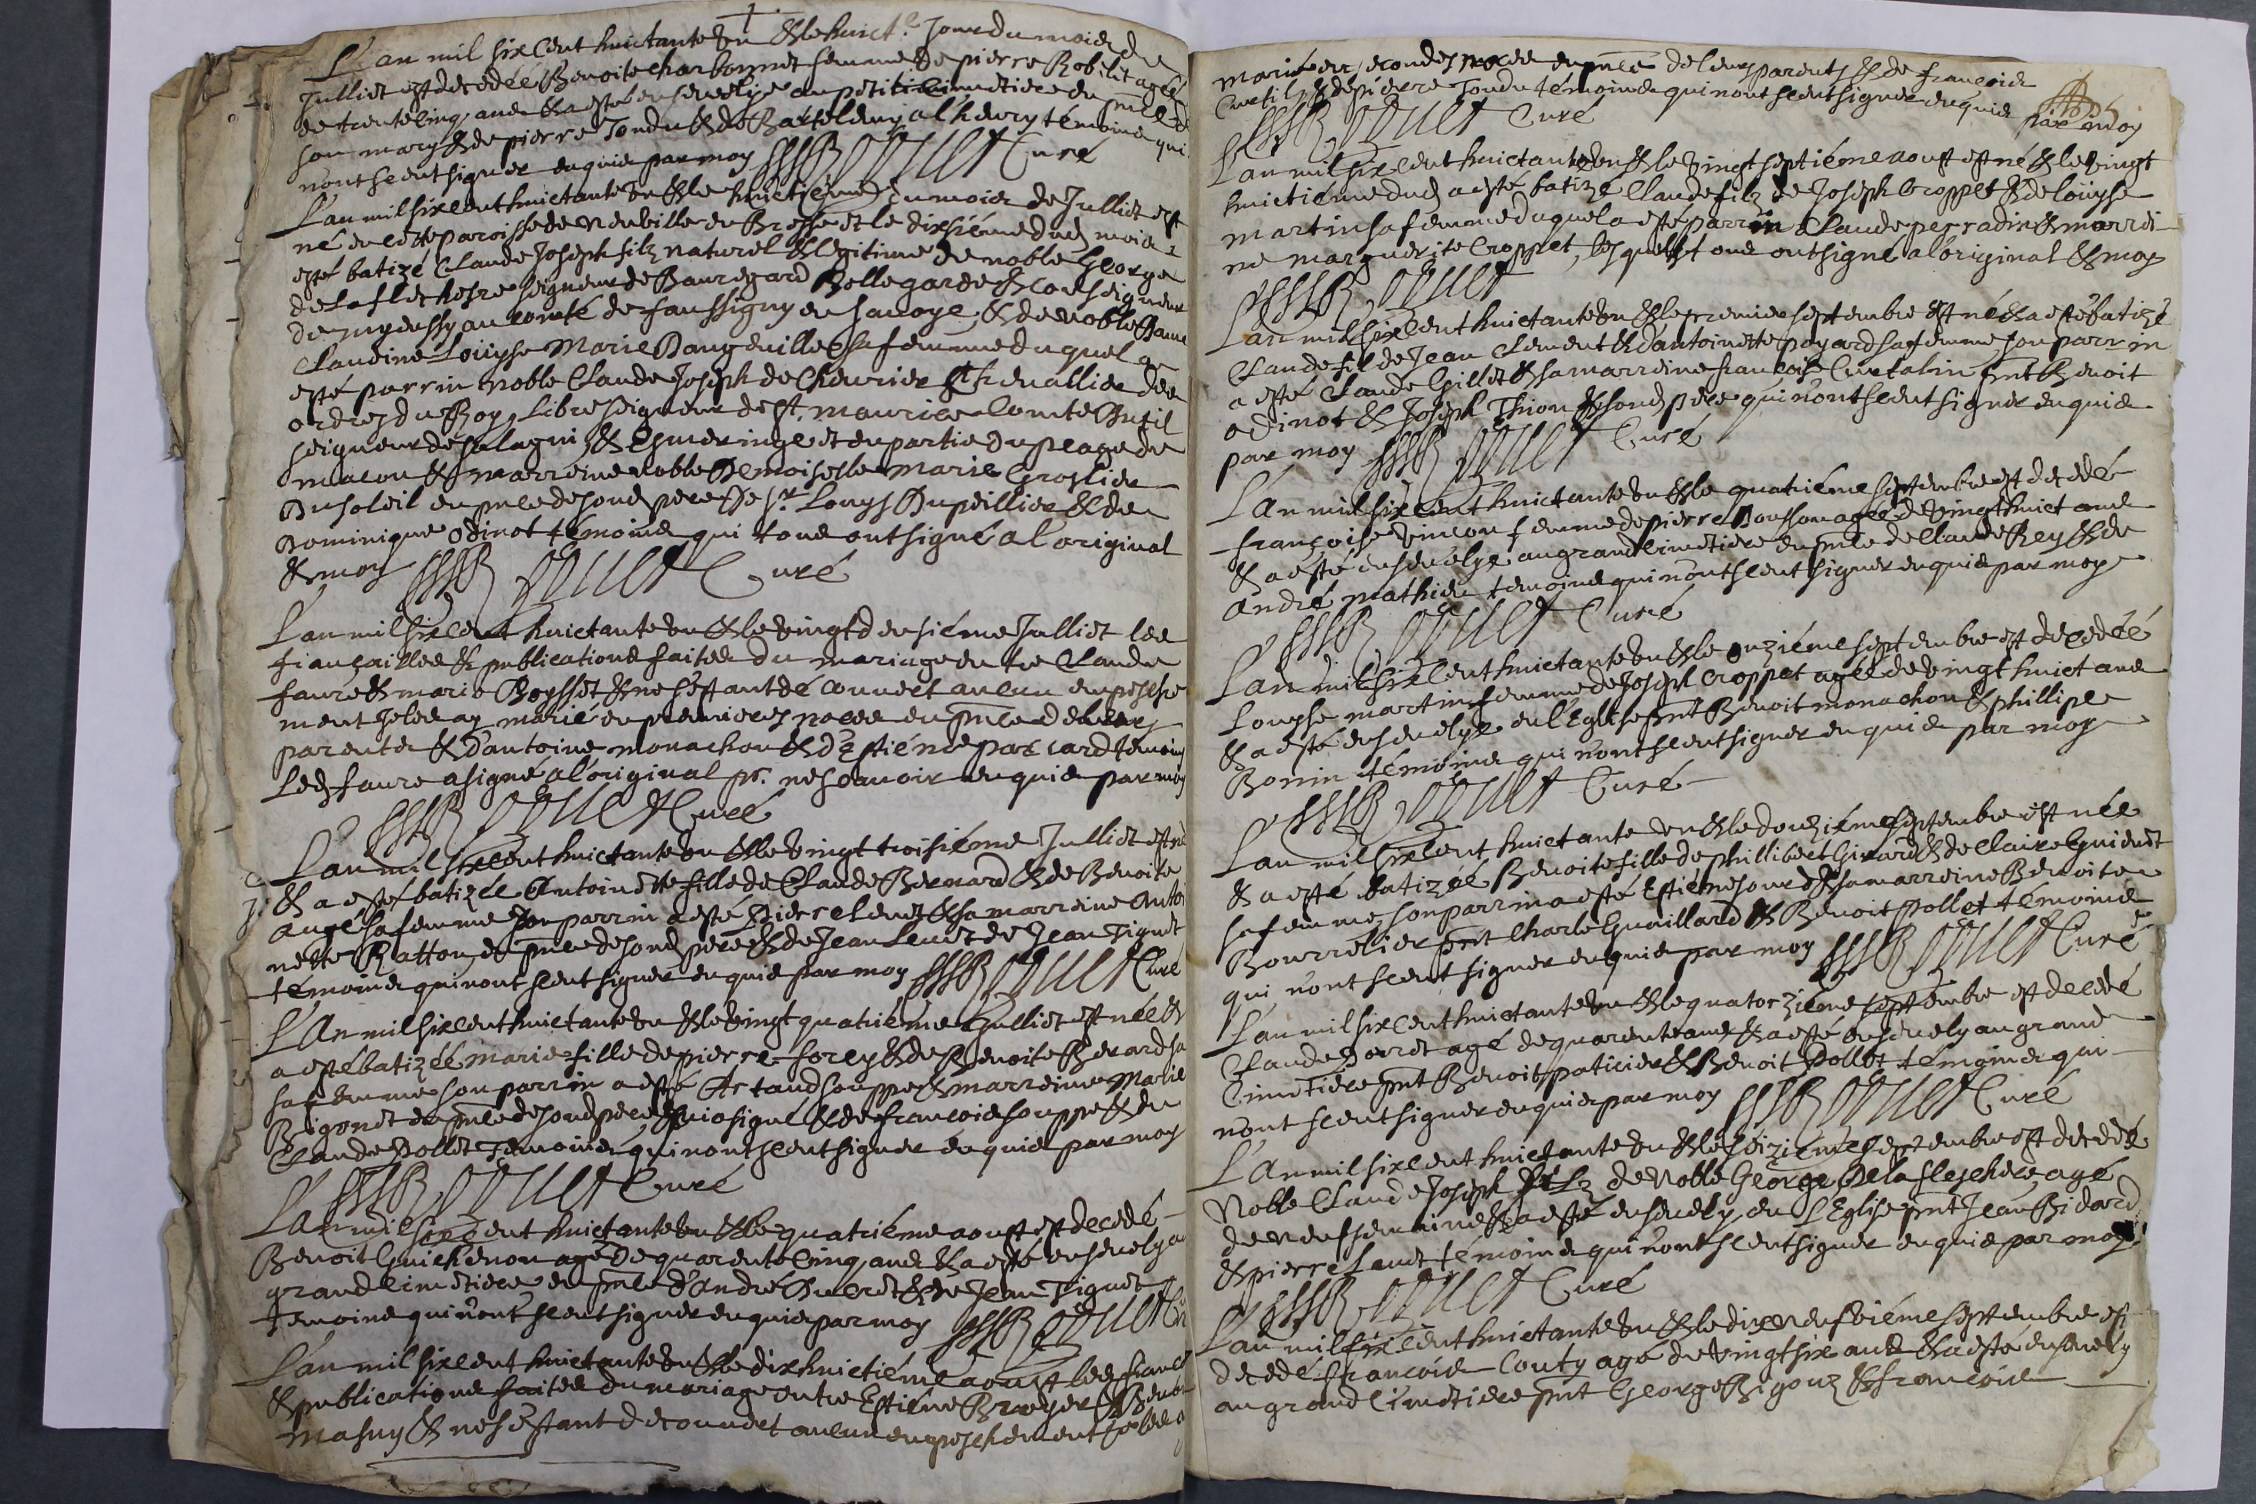 L'an mil six cent huictante un & le huict.e jour du mois de
Julliet est decedée Benoite charbonnet femme de pierre Robilit agée
de trente cinq ans & a esté ensevelye au petit cimetiere en pnce de
son mary & de pierre Tondu & de Bartelemy alhenry témoins qui
n'ont sceut signer enquis par moy Curé
L'an mil six cent huictante un & le huictième du mois de Julliet est
né en cette paroisse de Neuville en Bresse et le dixsiéme dud mois a
esté batizé Claude Joseph filz naturel & legitime de noble George
de la flechere seigneur de Bauregard Bellegarde & conseigneur
de au comté de faussigny en Savoye, & de noble Dame
Claudine Loüyse Marie Dangeville sa femme duquel a
esté parrin noble Claude Joseph de Chevrier chevallier des
ordres du Roy, Libre seigneur de st. maurice Comte
seigneur de salagni, & Esmeringe et en partie du peage de
macon & marreine noble Demoiselle Marie Groslier
Dusoleil en pnce de sond pere de sr. Louys Dupeillier & de
Dominique odinot témoins qui tous ont signé a l'original
& moy Curé
L'an mil six cent huictante un & le vingt deusiéme Julliet les
fiançailles & publications faites du mariage entre Claude
faure & marie Boysset & ne s'estant découvert aucun empesche
ment Je les ay marié en premieres noces en pnce de leurs
parents & d'antoine monachon & d'Estiéne paccard témoins
Led faure a signé a l'original pr. ne scavoir enquis par moy
Curé
L'an mil six cent huictante un & le vingt troisiéme Julliet est né
& a esté batizée Antoinette fille de Claude Bernard & de Benoite
augé sa femme son parrin a esté Pierre Lenet & sa marreine Antoi
nette Ratton en pnce de sond pere & de Jean Lenet de Jean Tignet
témoins qui n'ont sceut signer enquis par moy Curé
L'An mil six cent huictante un & le vingt quatriéme Julliet est née &
a esté batizée marie fille de pierre forey & de Benoite Berard sa
sa femme son parrin a esté Artaud souppe & marreine Marie
Bigonet en pnce de sond pere, qui a signé & de francois souppe & de
Claude Pollet Témoins qui n'ont sceut signer enquis par moy
Curé
L'an mil six cent huictante un & le quatriéme aoust est decedé
Benoit Guichenon agé de quarente cinq ans & a esté ensevely au
grand cimetiere en pnce d'andré Buclet & de Jean Tignet
témoins qui n'ont sceut signer enquis par moy
L'an mil six cent huictante un & le dix huictiéme aoust les fianc
& publications faites du mariage entre Estiéne Broyer & Benoi
masuy & ne s'estant decouvert aucun empeschement Je les a
marié en secondes noces en pnce de leurs parents & de francois
Curtil & de pierre Tondu témoins qui n'ont sceut signer enquis
par moy
Curé
L'an mil six cent huictante un & le vingt septiéme aoust est né & le vingt
huictiéme dud a esté batizé Claude filz de Joseph Croppet & de loüyse
martin sa femme duquel a esté parrin Claude perradin & marrei
ne marguerite Croppet, lesquels tous ont signé a l'original & moy
L'an mil six cent huictante un & le premier septembre est né & a esté batizé
Claude fil de Jean Clement & d'antoinette poyard sa femme, son parrin
a esté Claude Gillet & sa marreine francoise Curtalin pnt Benoit
odinot & Joseph Thion & sond pere qui n'ont sceut signer enquis
par moy Curé
L'An mil six cent huictante un & le quatriéme septembre est decedé
françoise vincon femme de pierre Bonson agée de vingt huict ans
& a esté ensevelye au grand cimetiere en pnce de Claude Rey & de
André mathieu témoins qui n'ont sceut signer enquis par moy
Curé
L'an mil six cent huictante un & le onziéme septembre est decedée
Louyse martin femme de Joseph Croppet agée de vingt huict ans
& a esté ensevelye en l'Eglise pnt Benoit monachon & phillipe
Bonin témoins qui n'ont sceut signer enquis par moy
Curé
L'an mil six cent huictante un & le douziéme septembre est née
& a esté batizée Benoite fille de phillibert Girard & de Claire Guienet
sa femme son parrin a esté Estiéne Jourd & sa marreine Benoite
Bourrelier pnt Charle Guaillard & Benoit Pollet témoins
qui n'ont sceut signer enquis par moy Curé
L'an mil six cent huictante un & le quatorziéme septembre est decedé
Claude agé de quarente ans & a esté ensevely au grand
Cimetiere pnt Benoit paticier & Benoit Pollet témoins qui
n'ont sceut signer enquis par moy Curé
L'An mil six cent huictante un & le seiziéme septembre est decedé
Noble Claude Joseph filz de Noble George de la flechere, agé
de neuf semaines & a esté ensevely en l'Eglise pnt Jean Bidard
& pierre Lenet témoins qui n'ont sceut signer enquis par moy
Curé
L'an mil six cent huictante un & le dix neufviéme septembre est
decedé francois Couty agé de vingt six ans & a esté ensevely
au grand Cimetiere pnt George Bigouz & francois